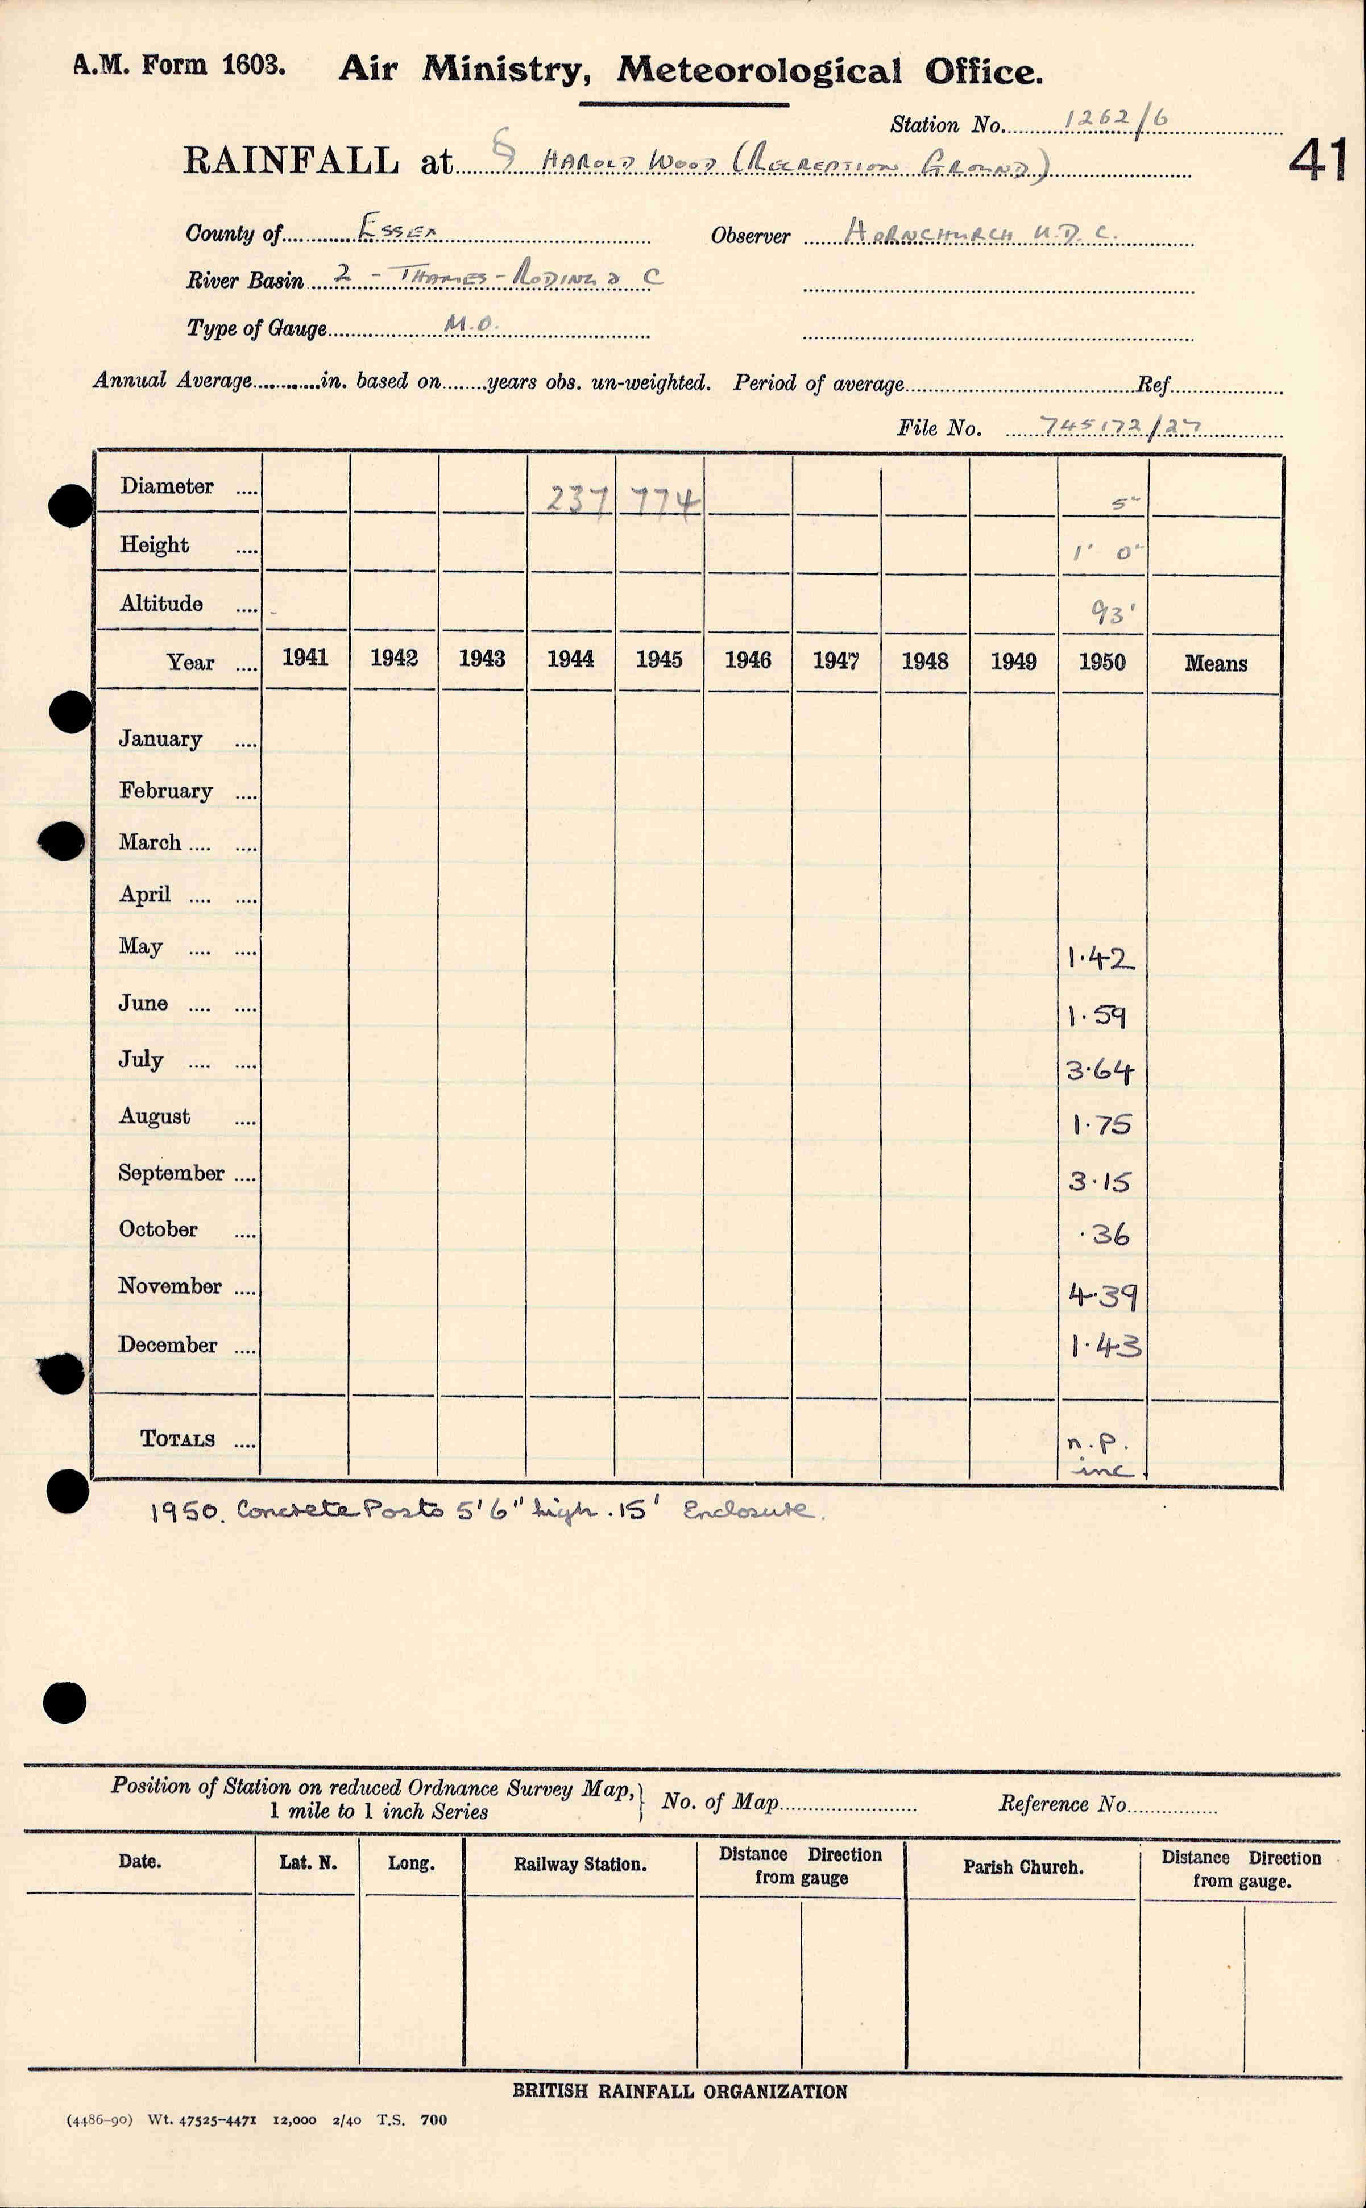 A.M. Form 1603. Air Ministry, Meteorological Office.
Station No. 1262/6
RAINFALL at § HAROLD WOOD (RECREATION GROUND) 41
County of ESSEX Observer HORNCHURCH U.D.C.
River Basin 2 - THAMES - RODING & C
Type of Gauge M.O.
Annual Average in. based on years obs. un-weighted. Period of average Ref.
File No. 745172/27
Diameter .... 237 774 5"
Height .... 1' 0"
Altitude .... 93'
Year .... 1941 1942 1943 1944 1945 1946 1947 1948 1949 1950 Means
January ....
February ....
March .... ....
April .... ....
May .... .... 1.42
June .... .... 1.59
July .... .... 3.64
August .... 1.75
September .... 3.15
October .... .36
November .... 4.39
December .... 1.43
TOTALS .... n.p.
inc.
1950. Concrete Posts 5'6" high. 15' Enclosure.
Position of Station on reduced Ordnance Survey Map, } No. of Map Reference No.
1 mile to 1 inch Series
Date. Lat. N. Long. Railway Station. Distance Direction from gauge Parish Church. Distance Direction from gauge.
BRITISH RAINFALL ORGANIZATION
(4486-90) Wt. 47525-4471 12,000 2/40 T.S. 700